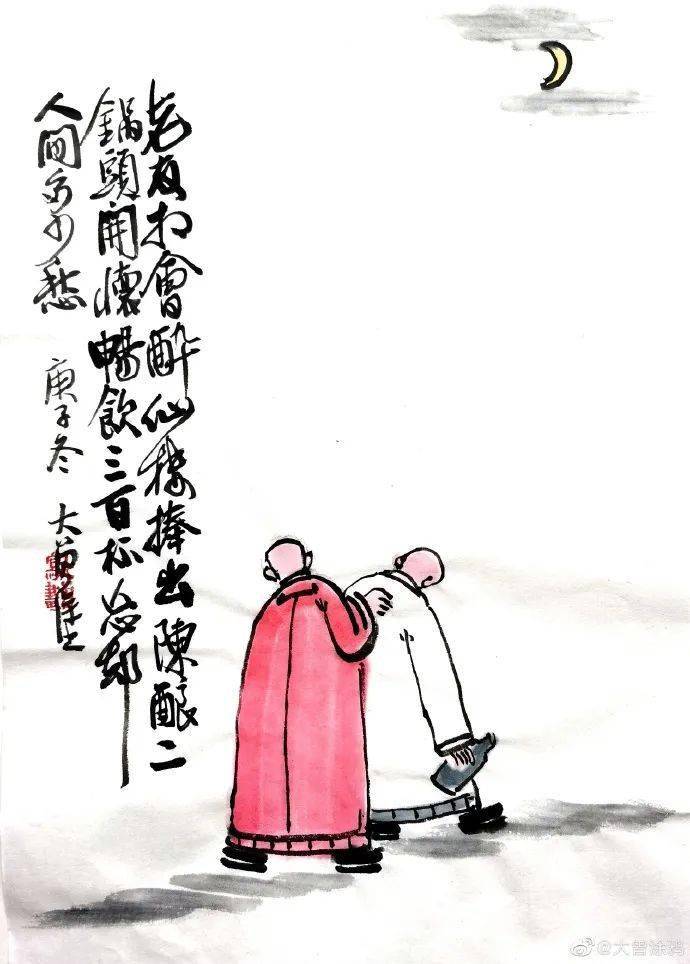 老友相會醉仙樓捧出陳釀二
鍋頭開懷暢飲三百杯忘卻
人間多少愁 庚子冬 大曾
@大曾涂鸦